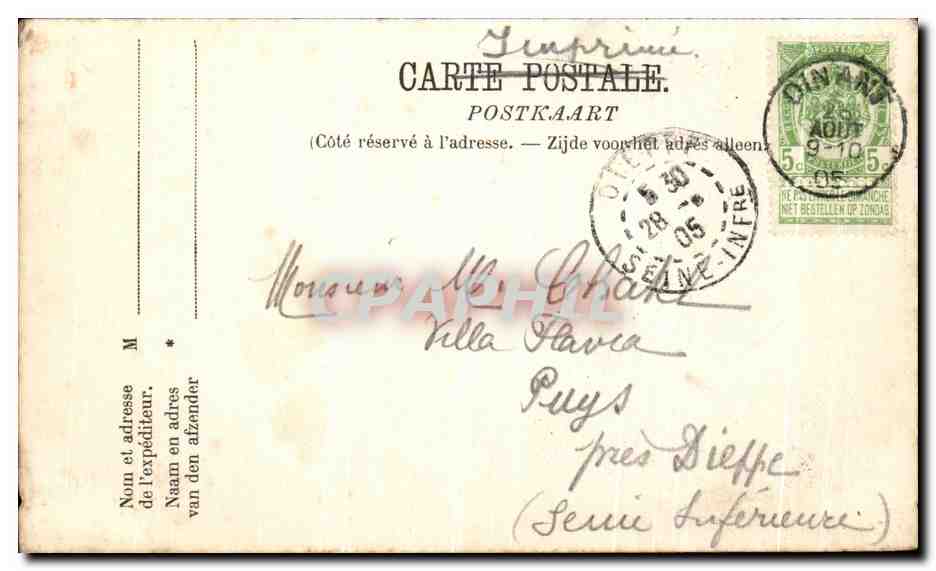 Imprimé
CARTE POSTALE.
POSTKAART
(Côté réservé à l'adresse. — Zijde voor het adres alleen
POSTES
DINANT
26
AOUT
9-10
05
5c 5c
NE PAS LIVRER LE DIMANCHE
NIET BESTELLEN OP ZONDAG
5 30
28 - 8
05
SEINE-INFRE
Monsieur M.
CPAPHIL
Villa Flavia
Puys
près Dieppe
(Seine Inférieure)
M
Nom et adresse
de l'expéditeur.
*
Naam en adres
van den afzender